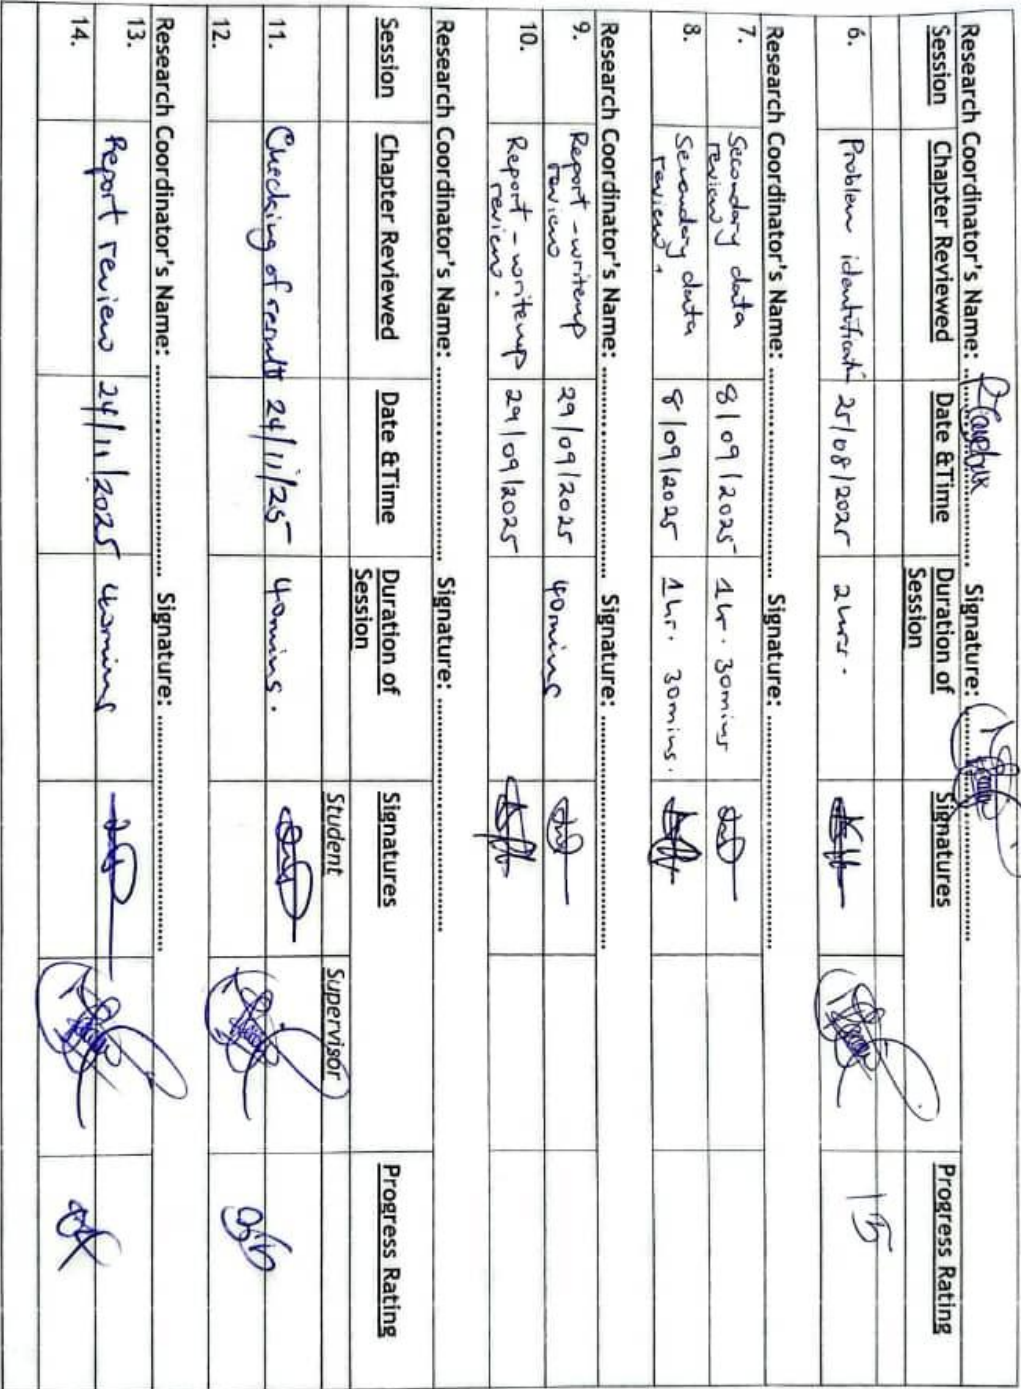 Research Coordinator's Name: ........ Signature: ........
Session Chapter Reviewed Date &Time Duration of Session Signatures Progress Rating
6. Problem identificatn 25/08/2025 2hrs. 15
Research Coordinator's Name: ........ Signature: ........
7. Secondary data review 8/09/2025 1hr. 30mins
8. Secondary data review. 8/09/2025 1hr. 30mins.
Research Coordinator's Name: ........ Signature: ........
9. Report-writeup review 29/09/2025 40mins
10. Report-writeup review. 29/09/2025
Research Coordinator's Name: ........ Signature: ........
Session Chapter Reviewed Date &Time Duration of Session Signatures Progress Rating
Student Supervisor
11. Checking of result 24/11/25 40mins.
12.
Research Coordinator's Name: ........ Signature: ........
13. Report review 24/11/2025 40mins
14.